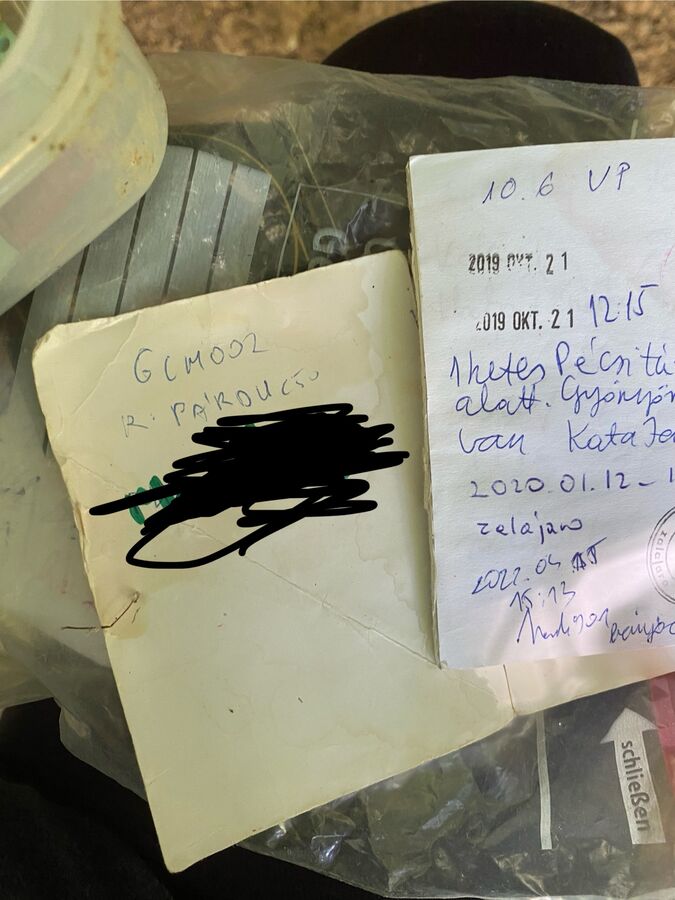 GCM002
R. PÁRDUCZ
10.6 VP
2019 OKT. 21
2019 OKT. 21 12:15
1 hetes Pécsi
alatt. Gyönyör
van Kata
2020.01.12-
zalajaro
2022.04
15:13
schließen